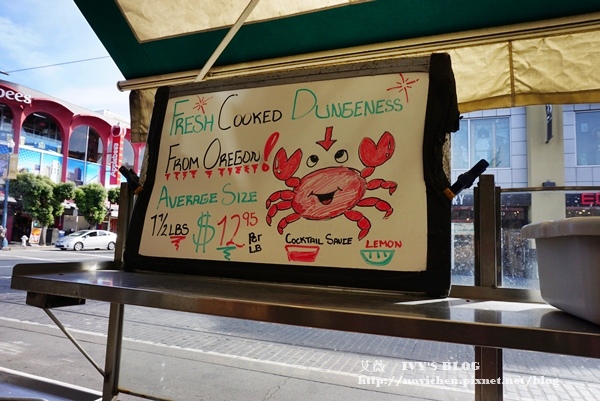 FRESH COOKED DUNGENESS
FROM OREGON!
AVERAGE SIZE
1 1/2 LBS $12.95 PER LB
COCKTAIL SAUCE
LEMON
IVY'S BLOG
http://novichen.pixnet.net/blog